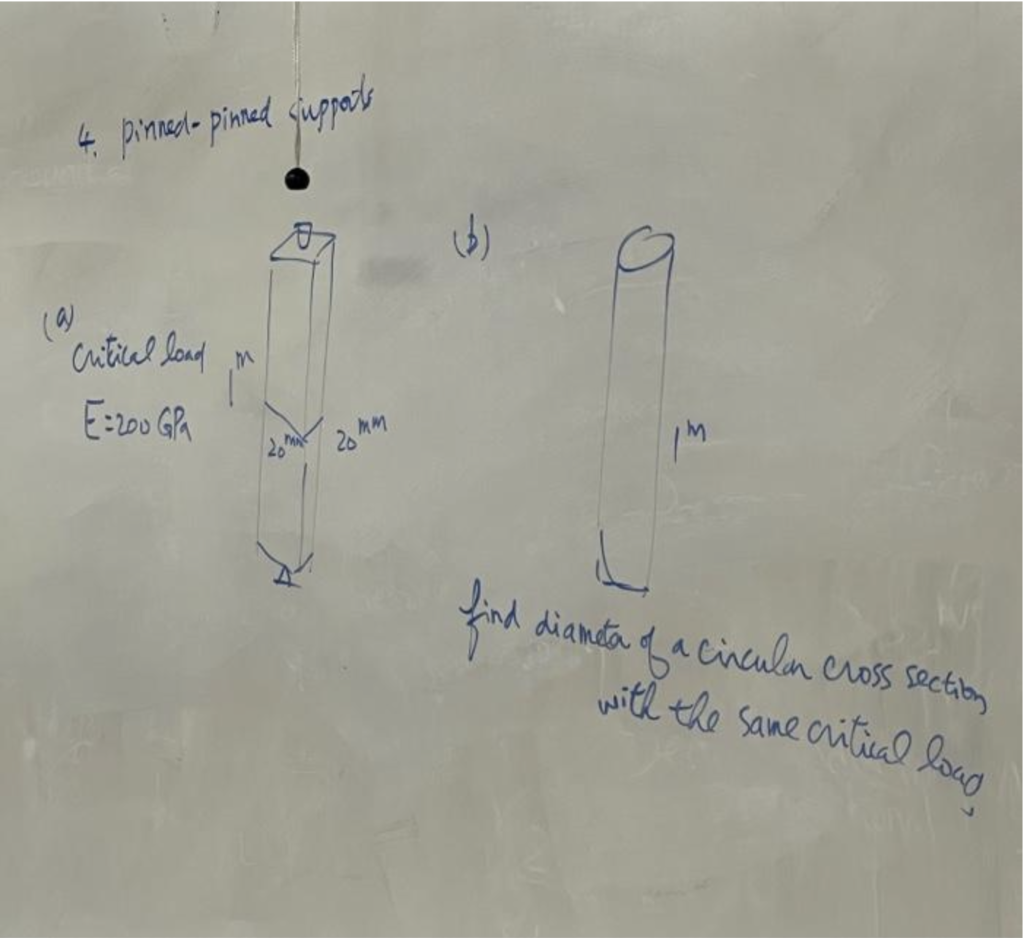 4. pinned-pinned supports
(a)
critical load
E=200 GPa
1 m
20 mm
20 mm
(b)
1 m
find diameter of a circular cross section
with the same critical load